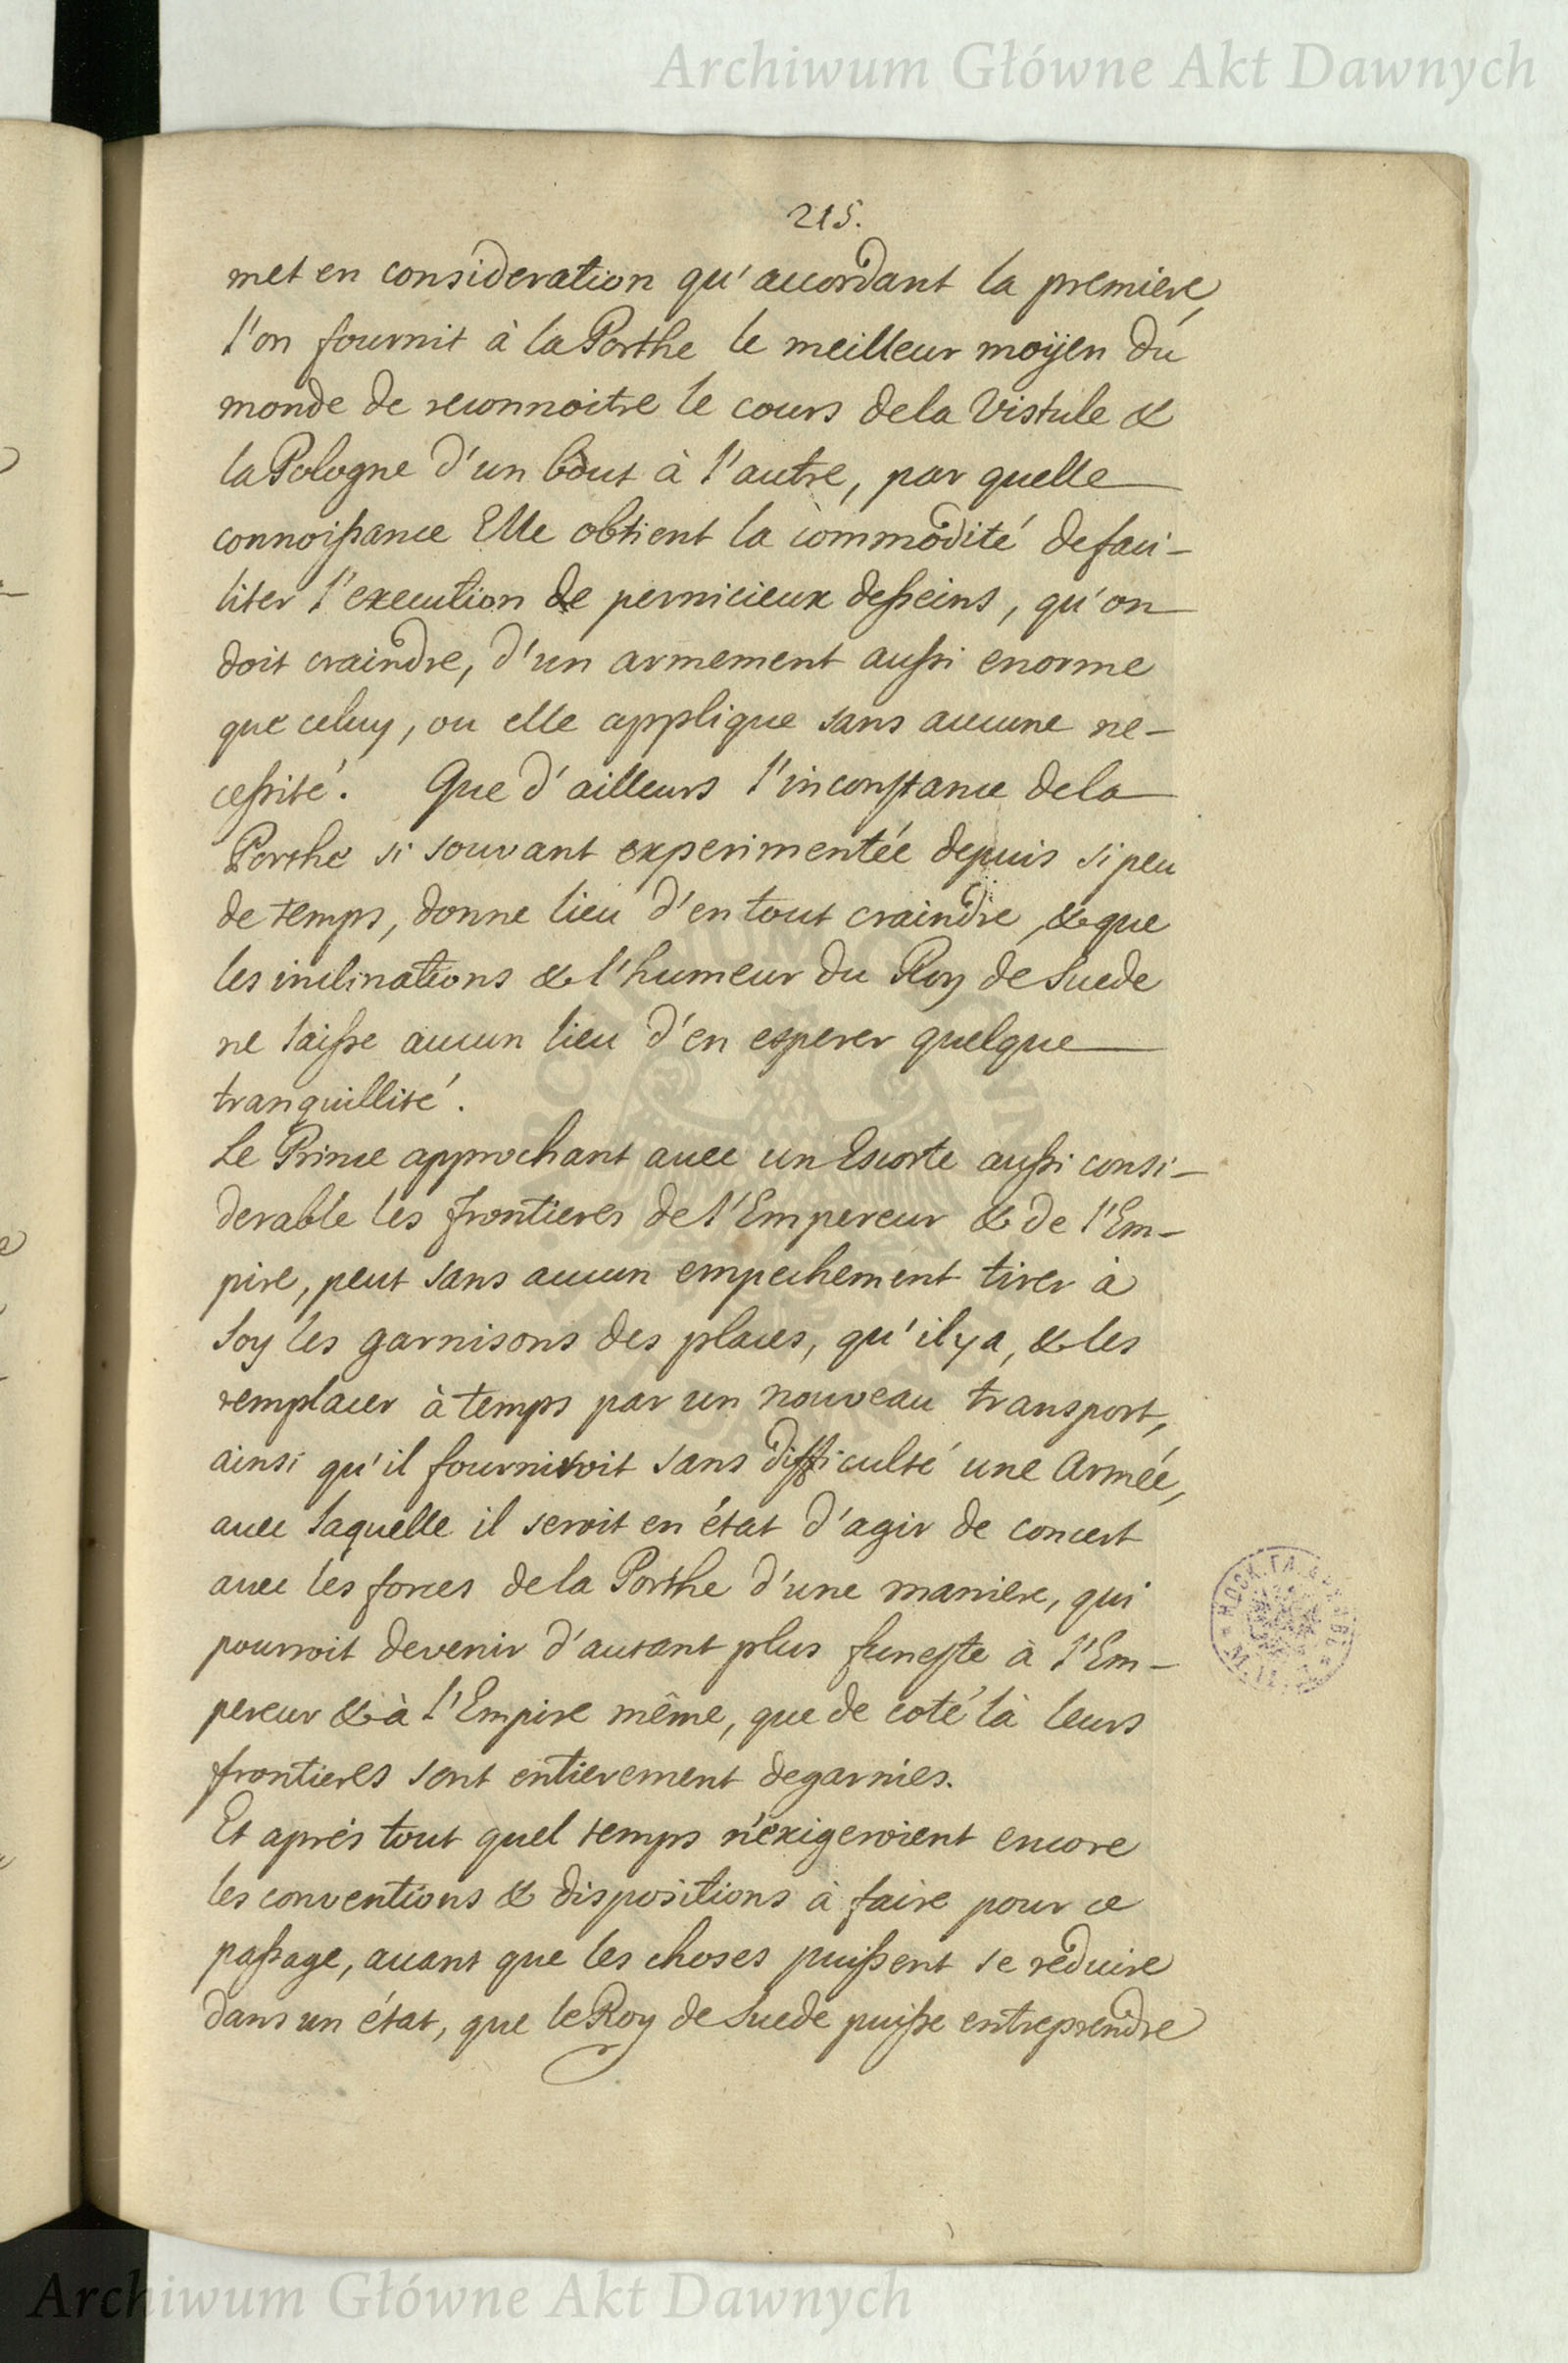 Archiwum Główne Akt Dawnych
215.
met en consideration qu'accordant la premiere,
l'on fournit à la Porthe le meilleur moÿen du
monde de reconnoitre le cours dela Vistule &
la Pologne d'un bout à l'autre, par quelle
connoißance Elle obtient la commodité de faci-
liter l'execution de pernicieux deßeins, qu'on
doit craindre, d'un armement außi enorme
que celuy, ou elle applique sans aucune ne-
ceßité. Que d'ailleurs l'inconstance dela
Porthe si souvant experimentée depuis si peu
de temps, donne lieu d'en tout craindre, & que
les inclinations & l'humeur du Roy de Suede
ne laiße aucun lieu d'en esperer quelque
tranquillité.
Le Prince approchant avec un Escorte außi consi-
derable les frontieres de l'Empereur & de l'Em-
pire, peut sans aucun empechement tirer à
soy les garnisons des places, qu'il y a, & les
remplacer à temps par un nouveau transport,
ainsi qu'il fourniroit sans difficulté une Armée,
avec laquelle il seroit en état d'agir de concert
avec les forces dela Porthe d'une maniere, qui
pourroit devenir d'autant plus funeste à l'Em-
pereur & à l'Empire même, que de coté là leurs
frontieres sont entierement degarnies.
Et aprés tout quel temps n'exigeroient encore
les conventions & dispositions à faire pour ce
paßage, avant que les choses puißent se reduire
dans un état, que le Roy de Suede puiße entreprendre
Archiwum Główne Akt Dawnych